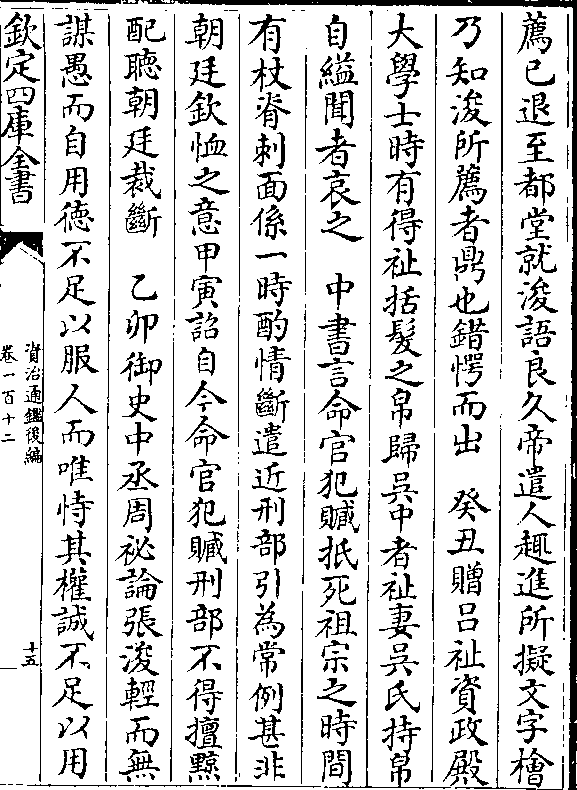 薦已退至都堂就浚語良久帝遣人趣進所擬文字檜
乃知浚所薦者鼎也錯愕而出　癸丑贈呂祉資政殿
大學士時有得祉括髮之帛歸吳中者祉妻吳氏持帛
自縊聞者哀之　中書言命官犯贓抵死祖宗之時間
有杖脊刺面係一時酌情斷遣近刑部引為常例甚非
朝廷欽恤之意甲寅詔自今命官犯贓刑部不得擅黥
配聽朝廷裁斷　乙卯御史中丞周祕論張浚輕而無
謀愚而自用德不足以服人而唯恃其權誠不足以用
欽定四庫全書
資治通鑑後編
卷一百十二
十五